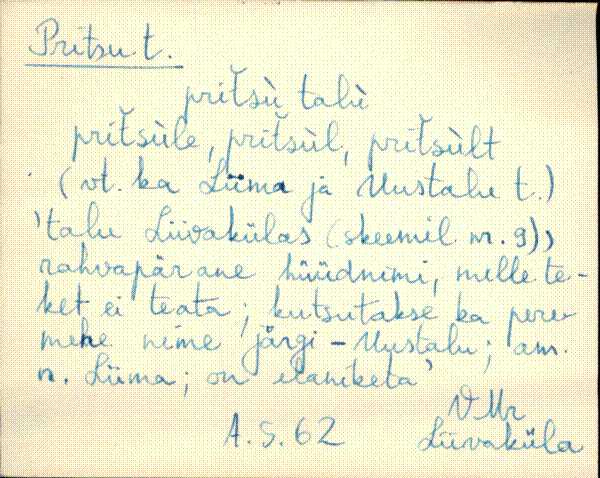 Pritsu t.
pritsù talù
pritsùle, pritsùl, pritsùlt
(vt. ka Liima ja Uustalu t.)
'talu Liivakülas (skeemil nr. 9),
rahvapärane hüüdnimi, mille te-
ket ei teata; kutsutakse ka pere-
mehe nime järgi - Uustalu; am.
n. Liima; on elaniketa'
V Mr
A.S.62 Liivaküla